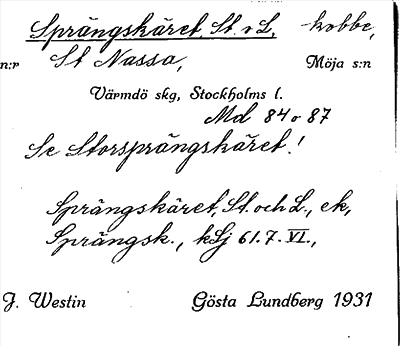 Sprängskäret, St. o L, -kobbe,
n:r St Nassa, Möja s:n
Värmdö skg, Stockholms l.
Md 84 o 87
Se Storsprängskäret!
Sprängskäret, St. och L., ek,
Sprängsk., kSj 61.7. VI.,
J. Westin Gösta Lundberg 1931